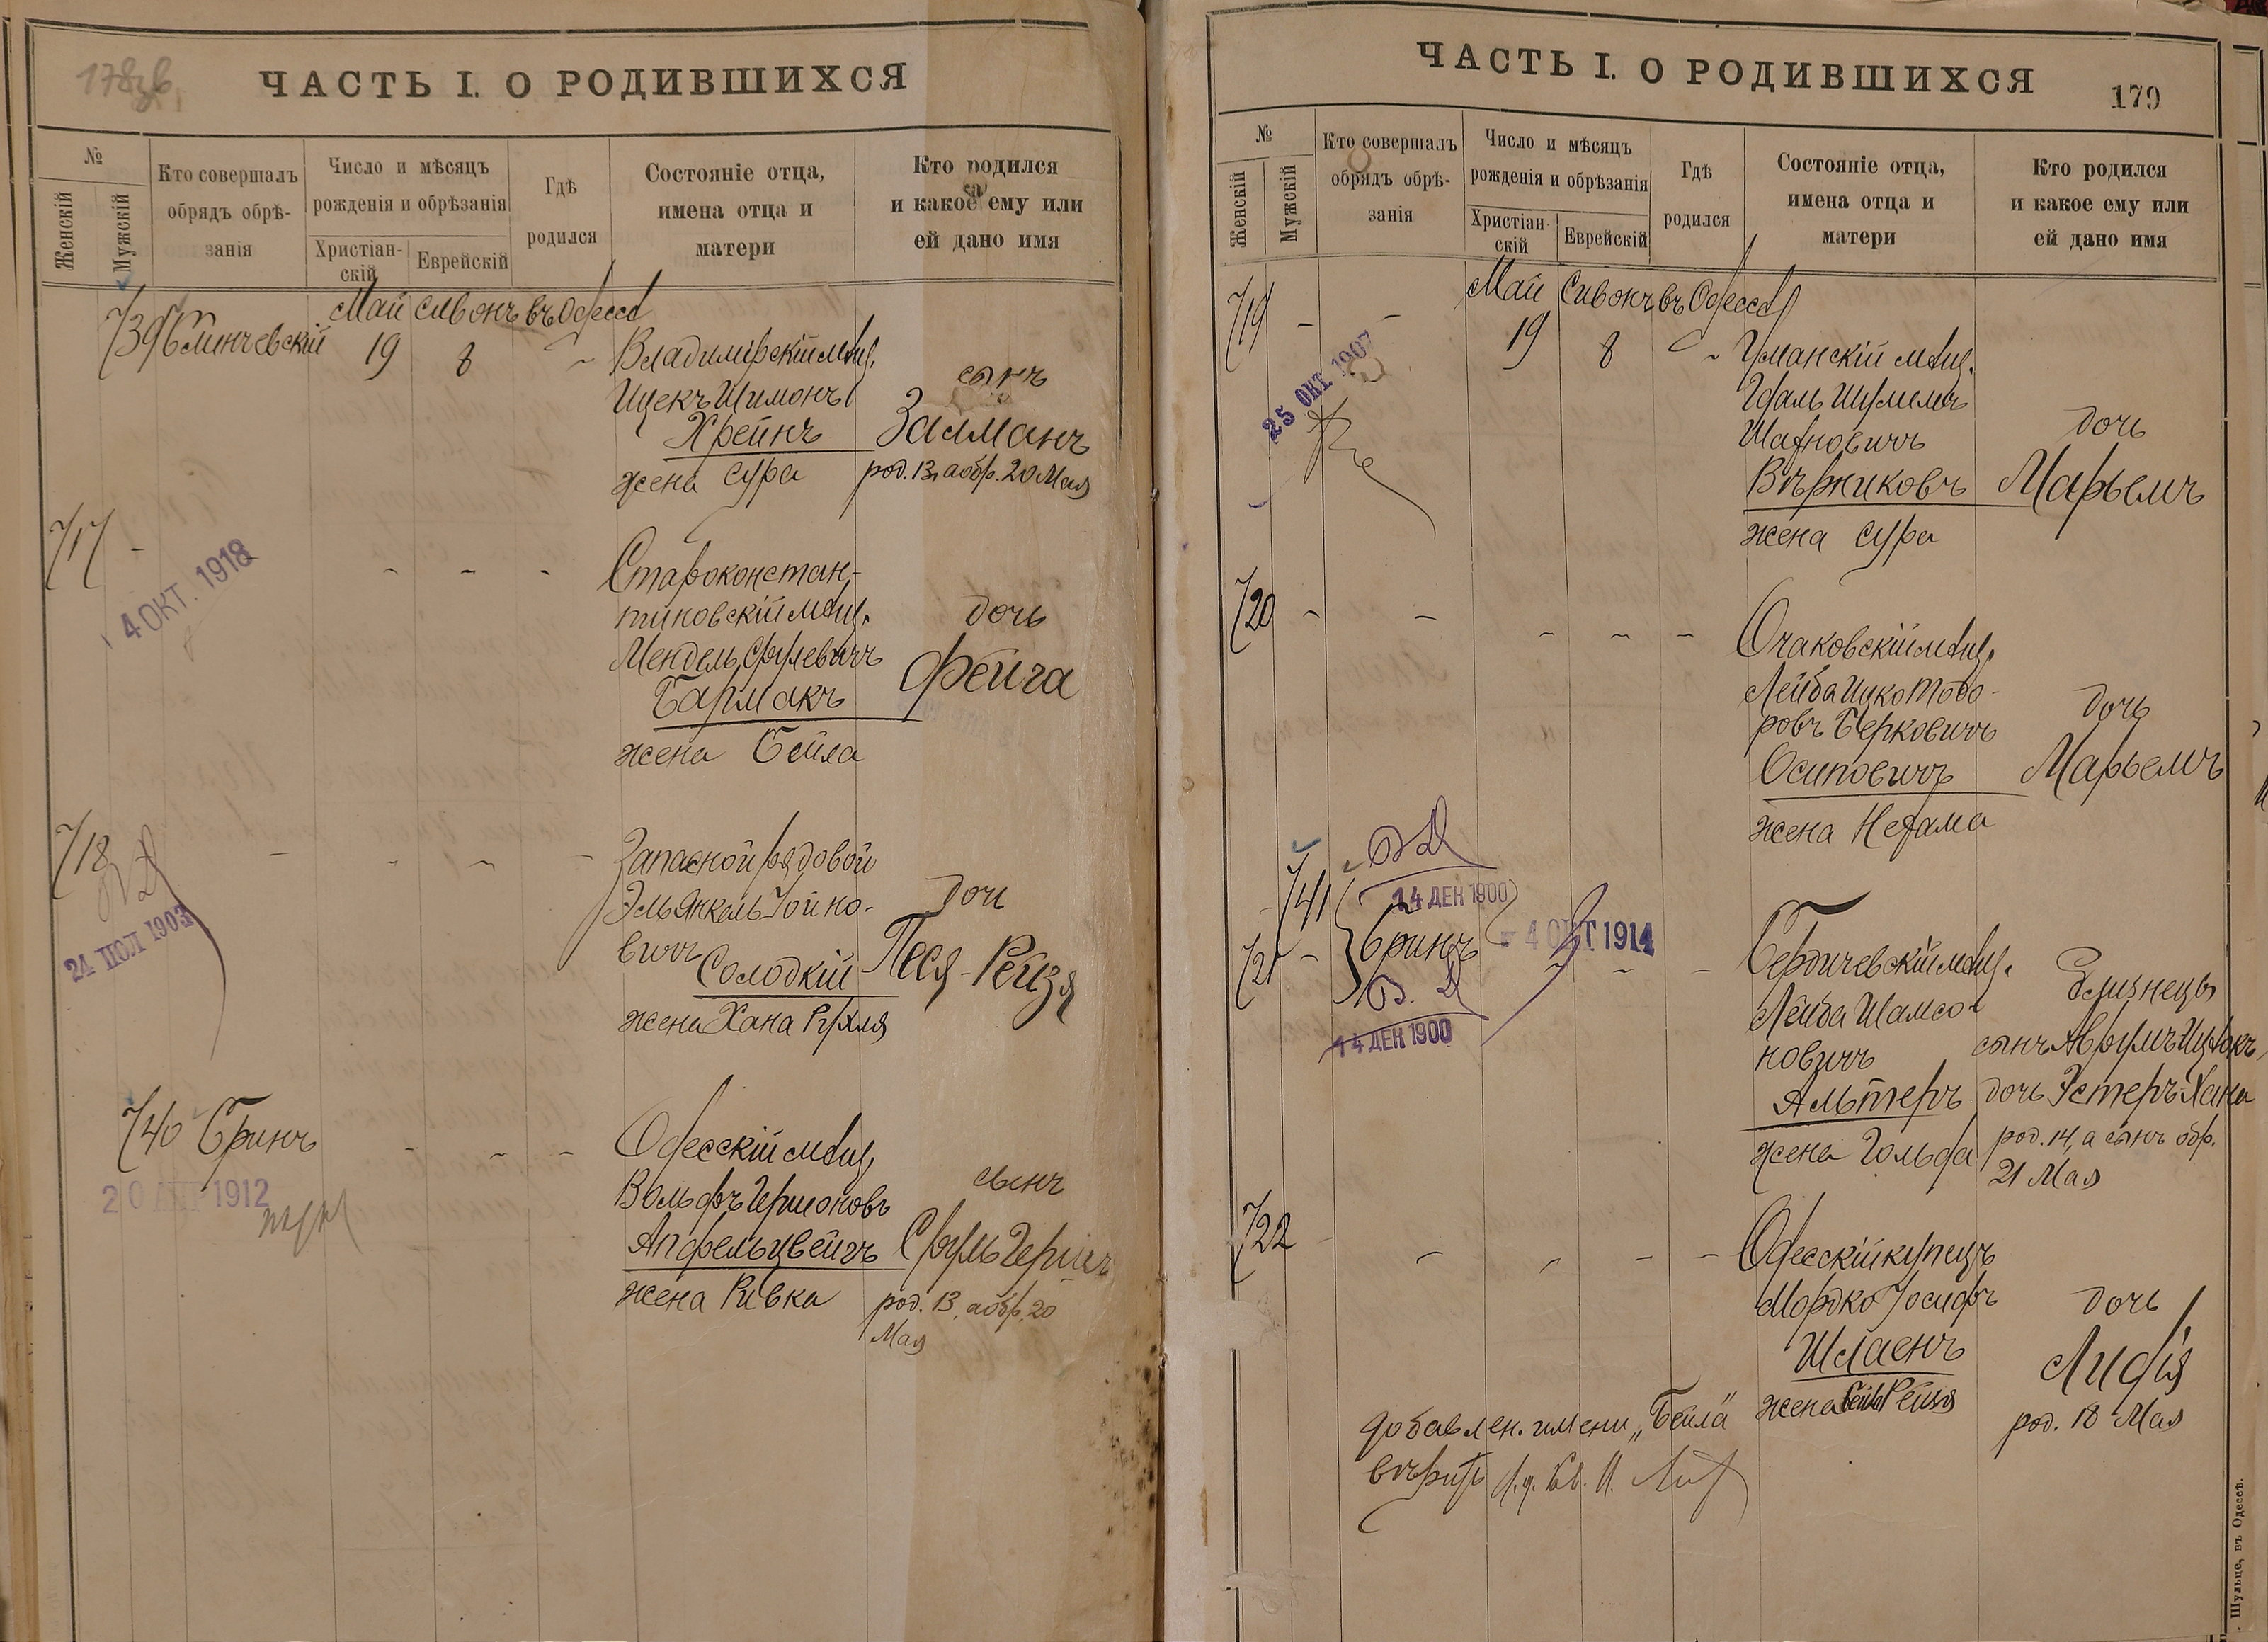 178 об
ЧАСТЬ I. О РОДИВШИХСЯ
№
Женскій
Мужскій
Кто совершалъ
обрядъ обрѣ-
занія
Число и мѣсяцъ
рожденія и обрѣзанія
Христіан-
скій
Еврейскій
Гдѣ
родился
Состояніе отца,
имена отца и
матери
Кто родился
и какое ему или
ей дано имя
Май Сивонъ въ Одессѣ
739 19 8 Владимірскій мѣщ.
Ицекъ Шимонъ
Хрейнъ
жена Сура
сынъ
Залманъ
род. 13, а обр. 20 Мая
717
4 ОКТ. 1918
Староконстан-
тиновскій мѣщ.
Мендель Срулевичъ
Бармакъ
жена Бейла
дочь
Фейга
718
24 ІЮЛ 1903
Запасной рядовой
Эль Янкель Іойно-
вичъ Солодкій
жена Хана Рухля
дочь
Песя-Рейзя
740 Бринъ
1912
Одесскій мѣщ.
Вольфъ Гершоновъ
Апфельцвейгъ
жена Ривка
сынъ
Сруль Гершъ
род. 13, а обр. 20
Мая
ЧАСТЬ I. О РОДИВШИХСЯ
179
№
Женскій
Мужскій
Кто совершалъ
обрядъ обрѣ-
занія
Число и мѣсяцъ
рожденія и обрѣзанія
Христіан-
скій
Еврейскій
Гдѣ
родился
Состояніе отца,
имена отца и
матери
Кто родился
и какое ему или
ей дано имя
Май Сивонъ въ Одессѣ
719 19 8 Уманскій мѣщ.
25 ОКТ. 1907
Шулимъ
Вѣржиковъ
жена Сура
дочь
Марьемъ
720
Очаковскій мѣщ.
Лейба Ицко Тодо-
ровъ Берковичъ
Осиповичъ
жена Нехама
дочь
Марьемъ
741
14 ДЕК 1900
721 Бринъ 4 ОКТ 1914
14 ДЕК 1900
Бердичевскій мѣщ.
Лейба Шамсо-
новичъ
Альтеръ
жена Гольда
Близнецы
сынъ Аврумъ Ицхокъ,
дочь Эстеръ-Хана
род. 14, а сынъ обр.
21 Мая
722
Одесскій купецъ
Мордко Іосифъ
Шлаенъ
жена Бейла Рейзя
дочь
Лидія
род. 18 Мая
добавлен. имени „Бейла"
вѣрить
Шульце, въ Одессѣ.